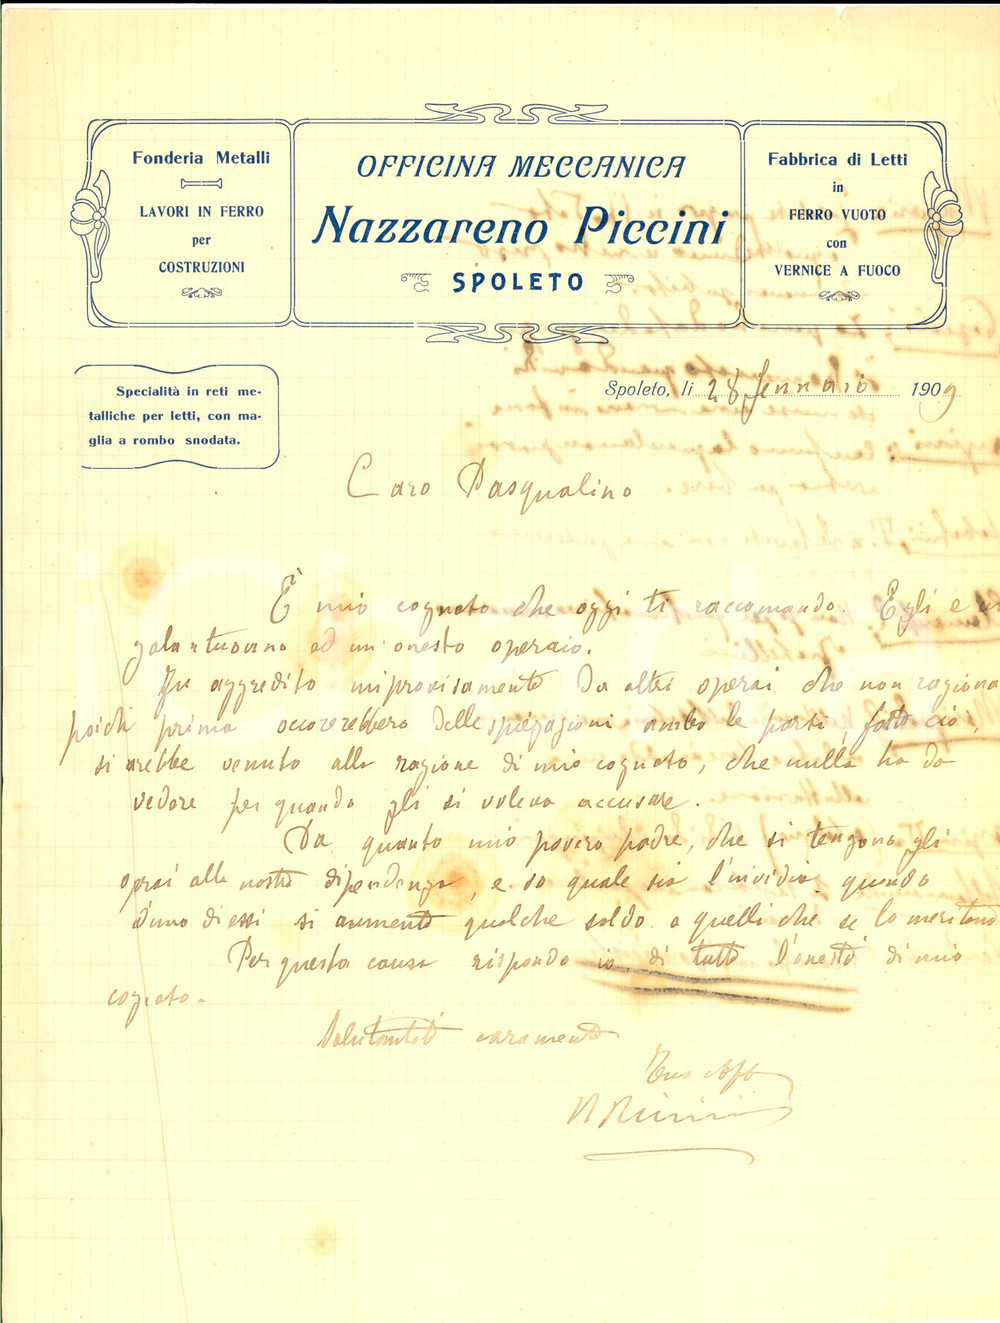 Fonderia Metalli
LAVORI IN FERRO
per
COSTRUZIONI
OFFICINA MECCANICA
Nazzareno Piccini
SPOLETO
Fabbrica di Letti
in
FERRO VUOTO
con
VERNICE A FUOCO
Specialità in reti me-
talliche per letti, con ma-
glia a rombo snodata.
Spoleto, li 28 Jennaio 1909
Caro Pasqualino
È mio cognato che oggi ti raccomando. Egli è un
galantuomo ed un'onesto operaio.
Fu aggredito improvisamente da altri operai che non ragiona
poichè prima occorerebbero delle spiegazioni ambo le parti, fatto ciò,
si arebbe venuto alla ragione di mio cognato, che nulla ha da
vedere per quando gli si voleva accusare.
Da quanto mio povero padre, che si tengono gli
oprai alla nostra dipendenza, e so quale sia l'invidia quando
d'uno di essi si aumenta qualche soldo a quelli che se lo meritano
Per questa causa rispondo io di tutto l'onestà di mio
cognato.
Salutandoti caramente
Tuo aff
N Piccini